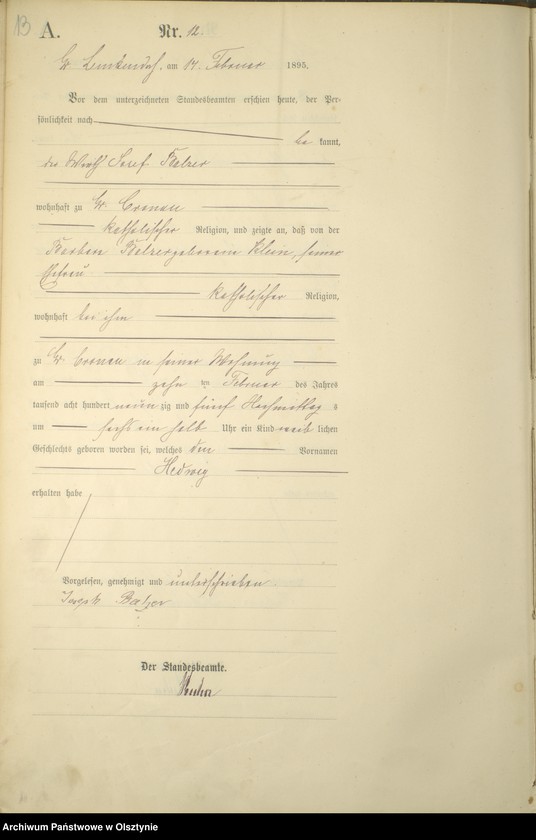 13
A.
Nr. 12.
Gr Lemkendorf, am 17. Februar 1895.
Vor dem unterzeneten Standesbeamten erschien heute, der Per-
sönlichkeit nach
be kannt,
der Wirth Josef Balzer
wohnhaft zu Gr Cronau
katholischer Religion, und zeigte an, daß von der
Barbara Balzer geborenen Klein, seiner
Ehefrau
katholischer Religion,
wohnhaft bei ihm
zu Gr Cronau in seiner Wohnung
am zehn ten Februar des Jahres
tausend acht hundert neun zig und fünf Nachmittag s
um sechs ein halb Uhr ein Kind weib lichen
Geschlechts geboren worden sei, welches den Vornamen
Hedwig
erhalten habe
Vorgelesen, genehmigt und unterschrieben
Joseph Balzer
Der Standesbeamte.
Archiwum Państwowe w Olsztynie